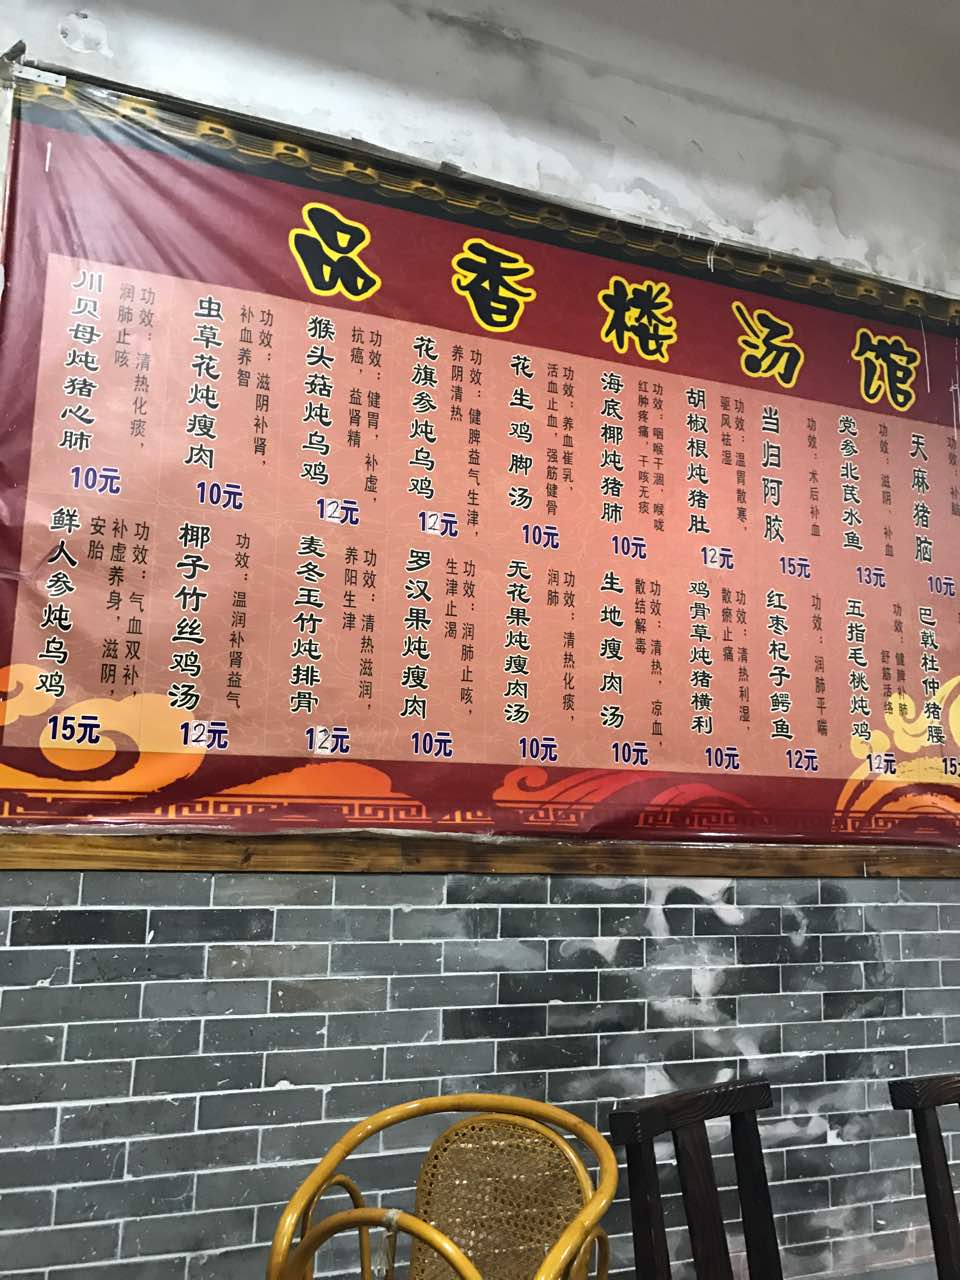 品香楼汤馆
川贝母炖猪心肺
功效：清热化痰，
润肺止咳
10元
虫草花炖瘦肉
功效：滋阴补肾，
补血养智
10元
猴头菇炖乌鸡
功效：健胃，补虚，
抗癌，益肾精
12元
花旗参炖乌鸡
功效：健脾益气生津，
养阴清热
12元
花生鸡脚汤
功效：养血崔乳，
活血止血，强筋健骨
10元
海底椰炖猪肺
功效：咽喉干涸，喉咙
红肿疼痛，干咳无痰
10元
胡椒根炖猪肚
功效：温胃散寒，
驱风祛湿
12元
当归阿胶
功效：术后补血
15元
党参北芪水鱼
功效：滋阴、补血
13元
天麻猪脑
功效：补脑
10元
鲜人参炖乌鸡
功效：气血双补，
补虚养身，滋阴，
安胎
15元
椰子竹丝鸡汤
功效：温润补肾益气
12元
麦冬玉竹炖排骨
功效：清热滋润，
养阳生津
12元
罗汉果炖瘦肉
功效：润肺止咳，
生津止渴
10元
无花果炖瘦肉汤
功效：清热化痰，
润肺
10元
生地瘦肉汤
功效：清热，凉血，
散结解毒
10元
鸡骨草炖猪横利
功效：清热利湿，
散瘀止痛
10元
红枣杞子鳄鱼
功效：润肺平喘
12元
五指毛桃炖鸡
功效：健脾补肺
舒筋活络
12元
巴戟杜仲猪腰
15